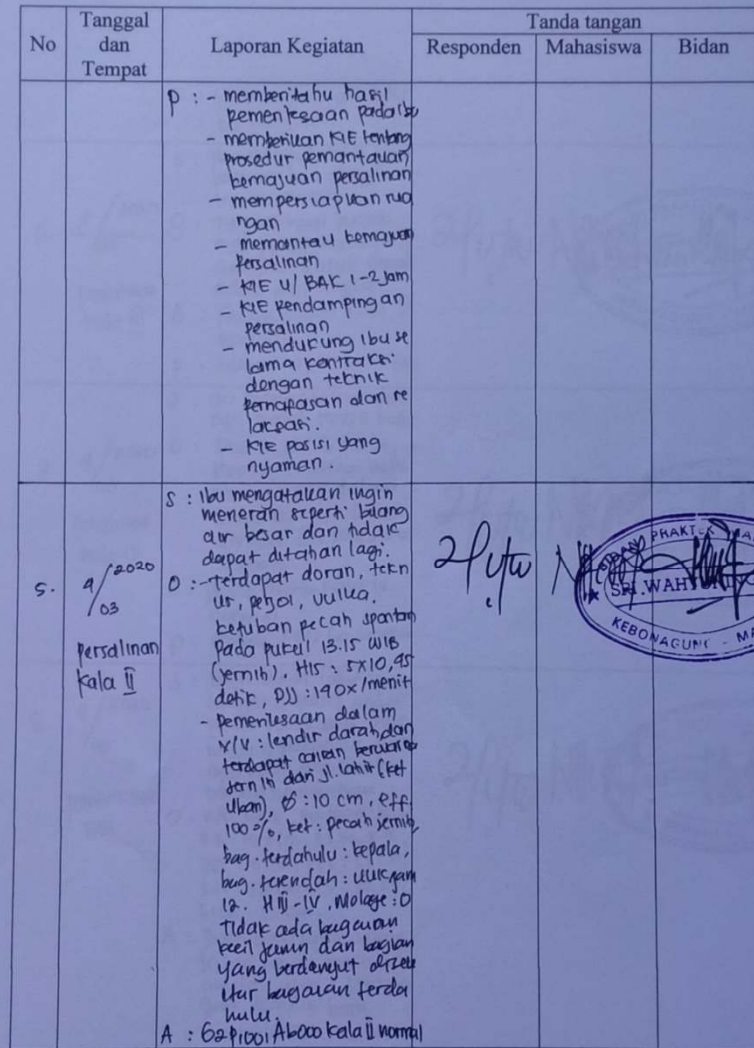 No
Tanggal
dan
Tempat
Laporan Kegiatan
Tanda tangan
Responden
Mahasiswa
Bidan
P : - memberitahu hasil
pemeriksaan pada ibu
- memberikan KIE tentang
prosedur pemantauan
kemajuan persalinan
- mempersiapkan rua
ngan
- memantau kemajuan
persalinan
- KIE u/ BAK 1-2 jam
- KIE pendampingan
persalinan
- mendukung ibu se
lama kontraksi
dengan teknik
pernapasan dan re
laksasi.
- KIE posisi yang
nyaman.
5.
4/03 2020
persalinan
kala II
S : Ibu mengatakan ingin
meneran seperti buang
air besar dan tidak
dapat ditahan lagi.
O : - terdapat doran, tekn
us, perjol, vulka.
ketuban pecah spontan
pada pukul 13.15 WIB
(jernih). HIS : 5x10, 45
detik, DJJ : 140x/menit
- pemeriksaan dalam
v/v : lendir darah dan
terdapat cairan berwarna
jernih dari jl. lahir (ket
uban), Ø : 10 cm, eff
100 %, ket : pecah jernih,
bag. terdahulu : kepala,
bag. terendah : UUK jam
12. H III - IV, Molage : 0
Tidak ada bagian
kecil janin dan bagian
yang berdenyut disek
itar bagian terda
hulu.
A : G2P1001Ab000 kala II normal
PRAKTEK
SRI WAH
KEBONAGUNG - MA